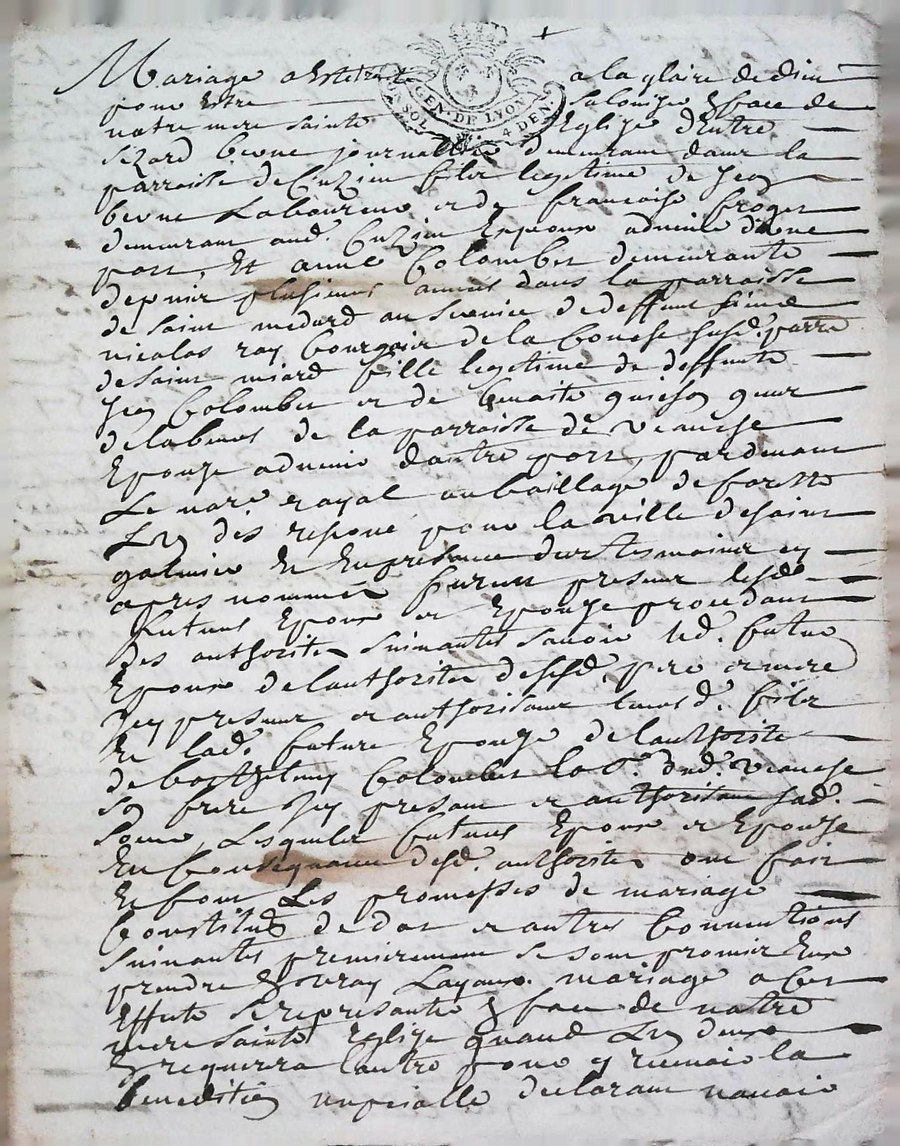 Mariage a este traité a la gloire de dieu
pour estre solonizé En face de
notre mere sainte Eglise d'Entre
Sezard beone journallier demeurant dans la
parroisse de Cuzieu fils legitime de Jean
beone Laboureur et de francoise froget
demeurant aud. Cuzieu Epoux advenir d'une
part, Et anne Colombet demeurante
depuis plusieurs annees dans la parroisse
de saint medard au service de deffunt sieur
nicolas ray bourgois de la bouche susd. parre
de saint miard fille legitime de deffunts
Jean Colombet et de benoite
de la parroisse de veauche
Epouze advenir d'autre part, pardevant
Le nore royal au bailliage de forests
Ln des reservé pour la ville de saint
galmier Et En presence des tesmoins cy
apres nommés furent presens lesd
futurs Epoux et Epouze procedant
des authorités suivantes savoir led. futur
Epoux de l'authorité desesd pere et mere
Icy presens et authorisant leurd. fils
Et lad. future Epouze de l'authorité
de barthelemy Colombet lab.r dud. veauche
son frere Icy present et authorisant sad.
soeur, Lesquels futurs Epoux et Epouze
En consequance desd. authorités ont fait
Et font Les promesses de mariage
Constituon de dot et autres Conventions
suivantes premierement se sont promis Eux
prendre En vray Loyaux mariage a cet
Effait se representer En face de notre
mere sainte Eglise quand L'un deux
En requerra l'autre pour y recevoir la
benediction nupcialle declarant n'avoir